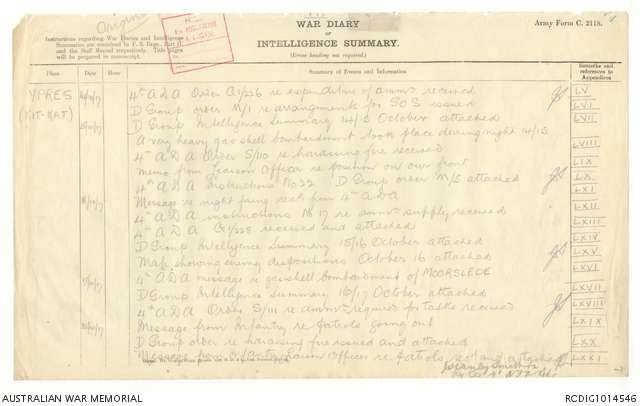 Original
Army Form C. 2118.
WAR DIARY
or
INTELLIGENCE SUMMARY.
(Erase heading not required.)
Instructions regarding War Diaries and Intelligence
Summaries are contained in F. S. Regs., Part II.
and the Staff Manual respectively. Title Pages
will be prepared in manuscript.
Place Date Hour Summary of Events and Information Remarks and references to Appendices
YPRES 14/10/17 4th A D A Order Q/226 re expenditure of ammn received LV
(KIT-KAT) D Group order M/1 re arrangements for SOS issued LVI
15/10/17 D Group Intelligence Summary 14/15 October attached LVII
A very heavy gas shell bombardment took place during night 14/15
4th A D A Order S/110 re harassing fire received LVIII
Memo from Liaison Officer re position on our front LIX
4th A D A Instructions No 22 D Group order M/5 attached LX
Message re night firing recd from 4th A D A LXI
16/10/17 4th A D A instructions No 17 re ammn supply received LXII
4th A D A Q/228 received and attached LXIII
D Group Intelligence Summary 15/16 October attached LXIV
Map showing enemy dispositions October 16 attached LXV
4th A D A message re gas shell bombardment of MOORSLEDE LXVI
17/10/17 D Group Intelligence Summary 16/17 October attached LXVII
4th A D A Order S/111 re ammn required for tasks received LXVIII
Message from Infantry re patrols going out LXIX
D Group order re harassing fire issued and attached LXX
Message from Infantry Liaison Officer re patrols recd and attached LXXI
AUSTRALIAN WAR MEMORIAL
RCDIG1014546